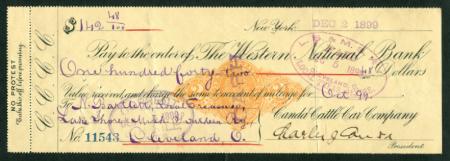 $142 48/100 New York. DEC 2 1899
Pay to the order of The Western National Bank
One hundred forty two 48 Dollars
Value received and charge the same to account of mileage for Oct 99
To N. Bartlett, Local Treasurer, Canda Cattle Car Company
Lake Shore & Mich. Southern Ry.
No 11543 Cleveland, O. Charles J. Canda
President
C. C. C. C.
NO PROTEST
Take this off before presenting
L. S. & M. S.